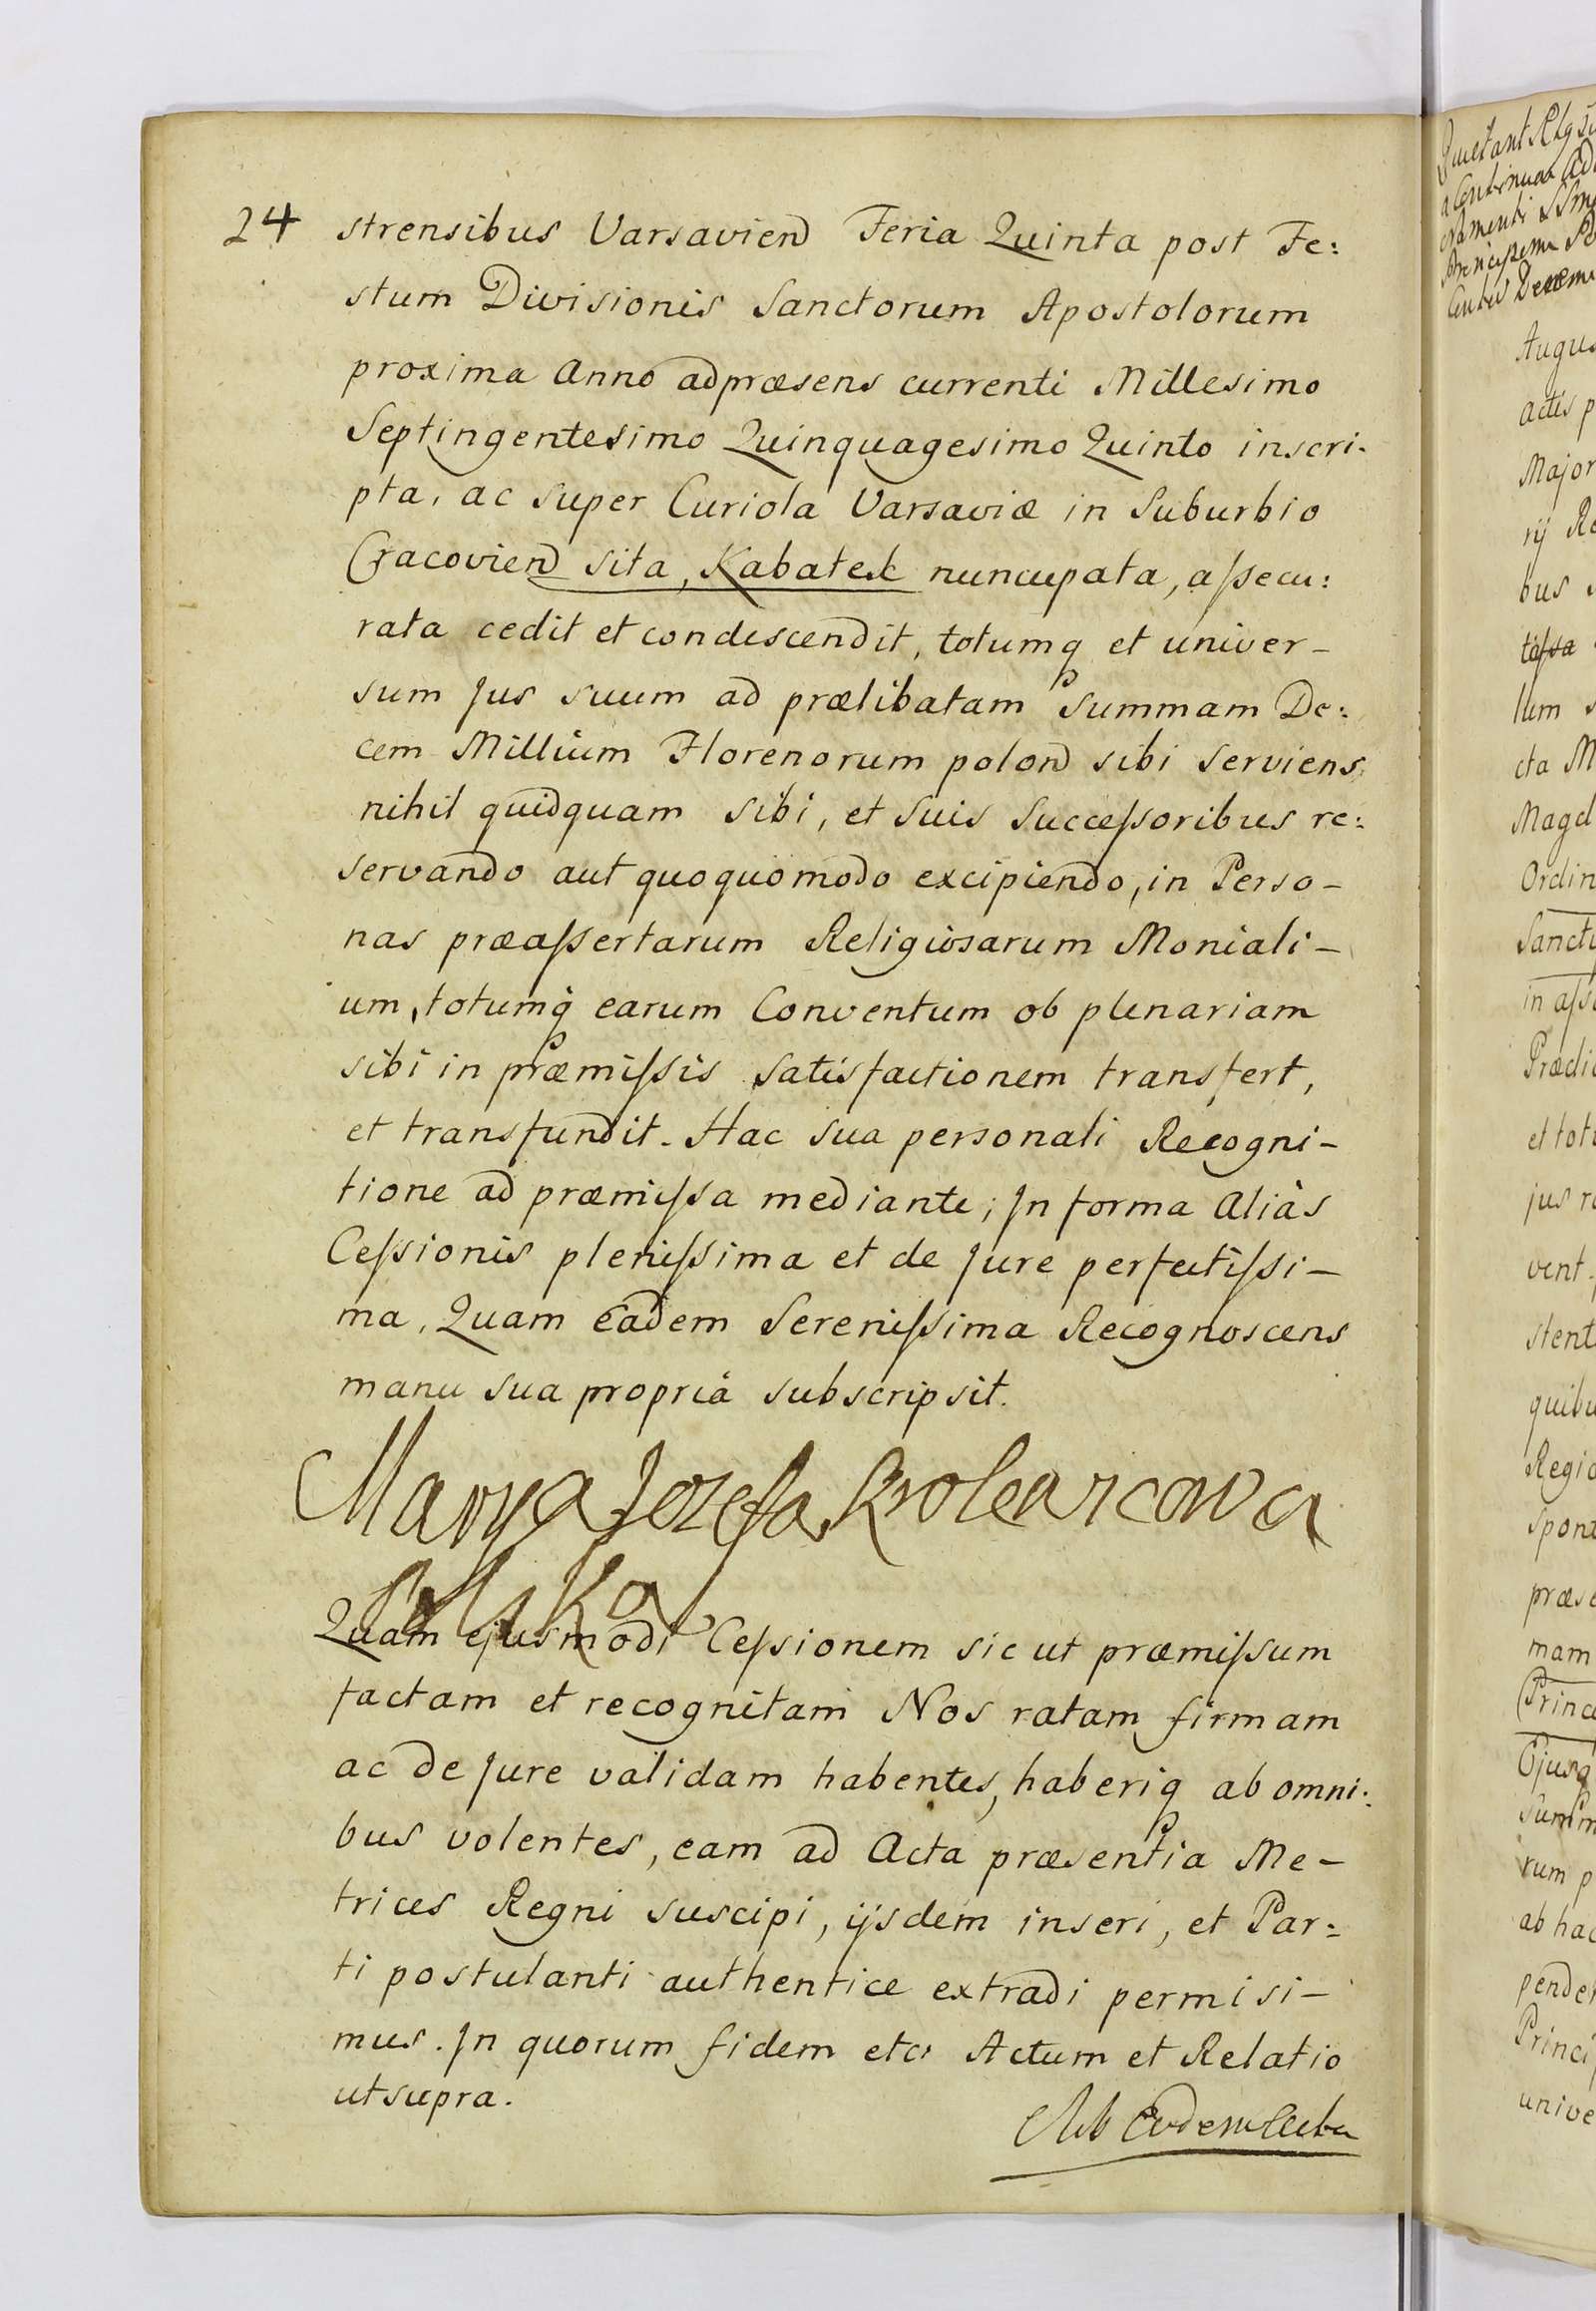 24 strensibus Varsaviend Feria Quinta post Fe:
stum Divisionis Sanctorum Apostolorum
proxima Anno adpræsens currenti Millesimo
Septingentesimo Quinquagesimo Quinto inscri-
pta, ac super Curiola Varsaviæ in Suburbio
Cracoviend sita, Kabatek nuncupata, assecu:
rata cedit et condescendit, totumq et univer-
sum Jus suum ad prælibatam Summam De:
cem Millium Florenorum polond sibi serviens,
nihil quidquam sibi, et suis successoribus re:
servando aut quoquomodo excipiendo, in Perso-
nas præassertarum Religiosarum Moniali-
um, totumq earum Conventum ob plenariam
sibi in præmissis satisfactionem transfert,
et transfundit. Hac sua personali Recogni-
tione ad præmissa mediante; In forma Aliàs
Cessionis plenissima et de Jure perfectissi-
ma, Quam eadem Serenissima Recognoscens
manu sua propriâ subscripsit.
Marya Jozefa Krolewicowa
Polska
Quam ejusmodi Cessionem sic ut præmissum
factam et recognitam Nos ratam firmam
ac de Jure validam habentes, haberiq ab omni:
bus volentes, eam ad Acta præsentia Me-
trices Regni suscipi, ijsdem inseri, et Par:
ti postulanti authentice extradi permisi-
mus. In quorum fidem etc: Actum et Relatio
ut supra.
Augus
actis p
Major
rij Re
bus
lum s
cta M
Magd
Ordin
Sanctu
in asse
Prædic
et tot
jus re
vent
stent
quibu
Regia
spon
præs
mam
Princ
Ejusq
Summ
rum p
ab hac
pende
Princip
unive